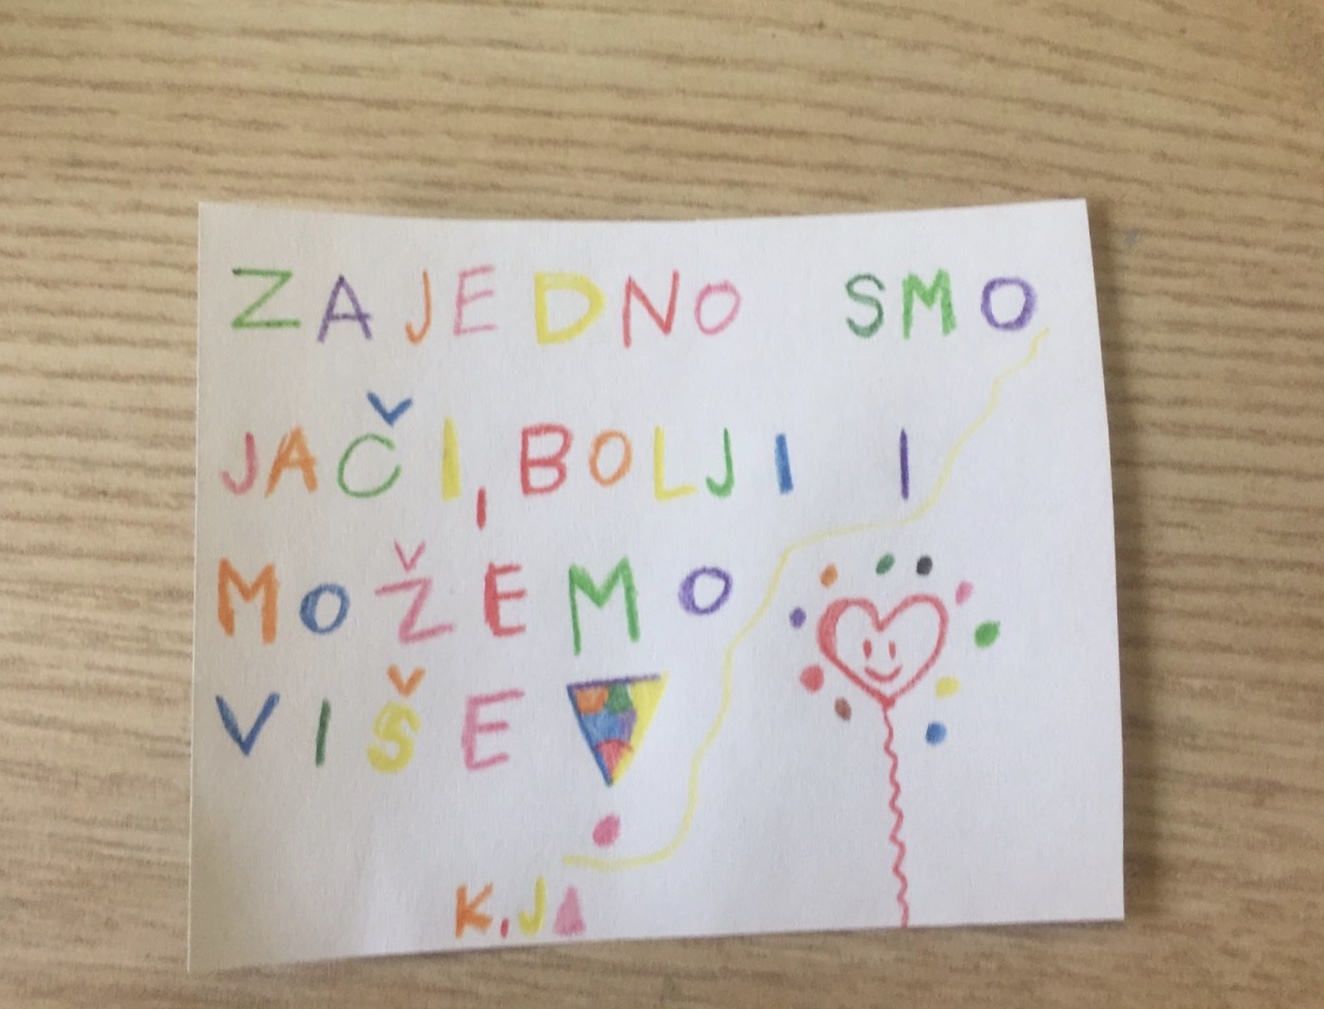 ZAJEDNO SMO
JAČI, BOLJI I
MOŽEMO
VIŠE!
K.JA